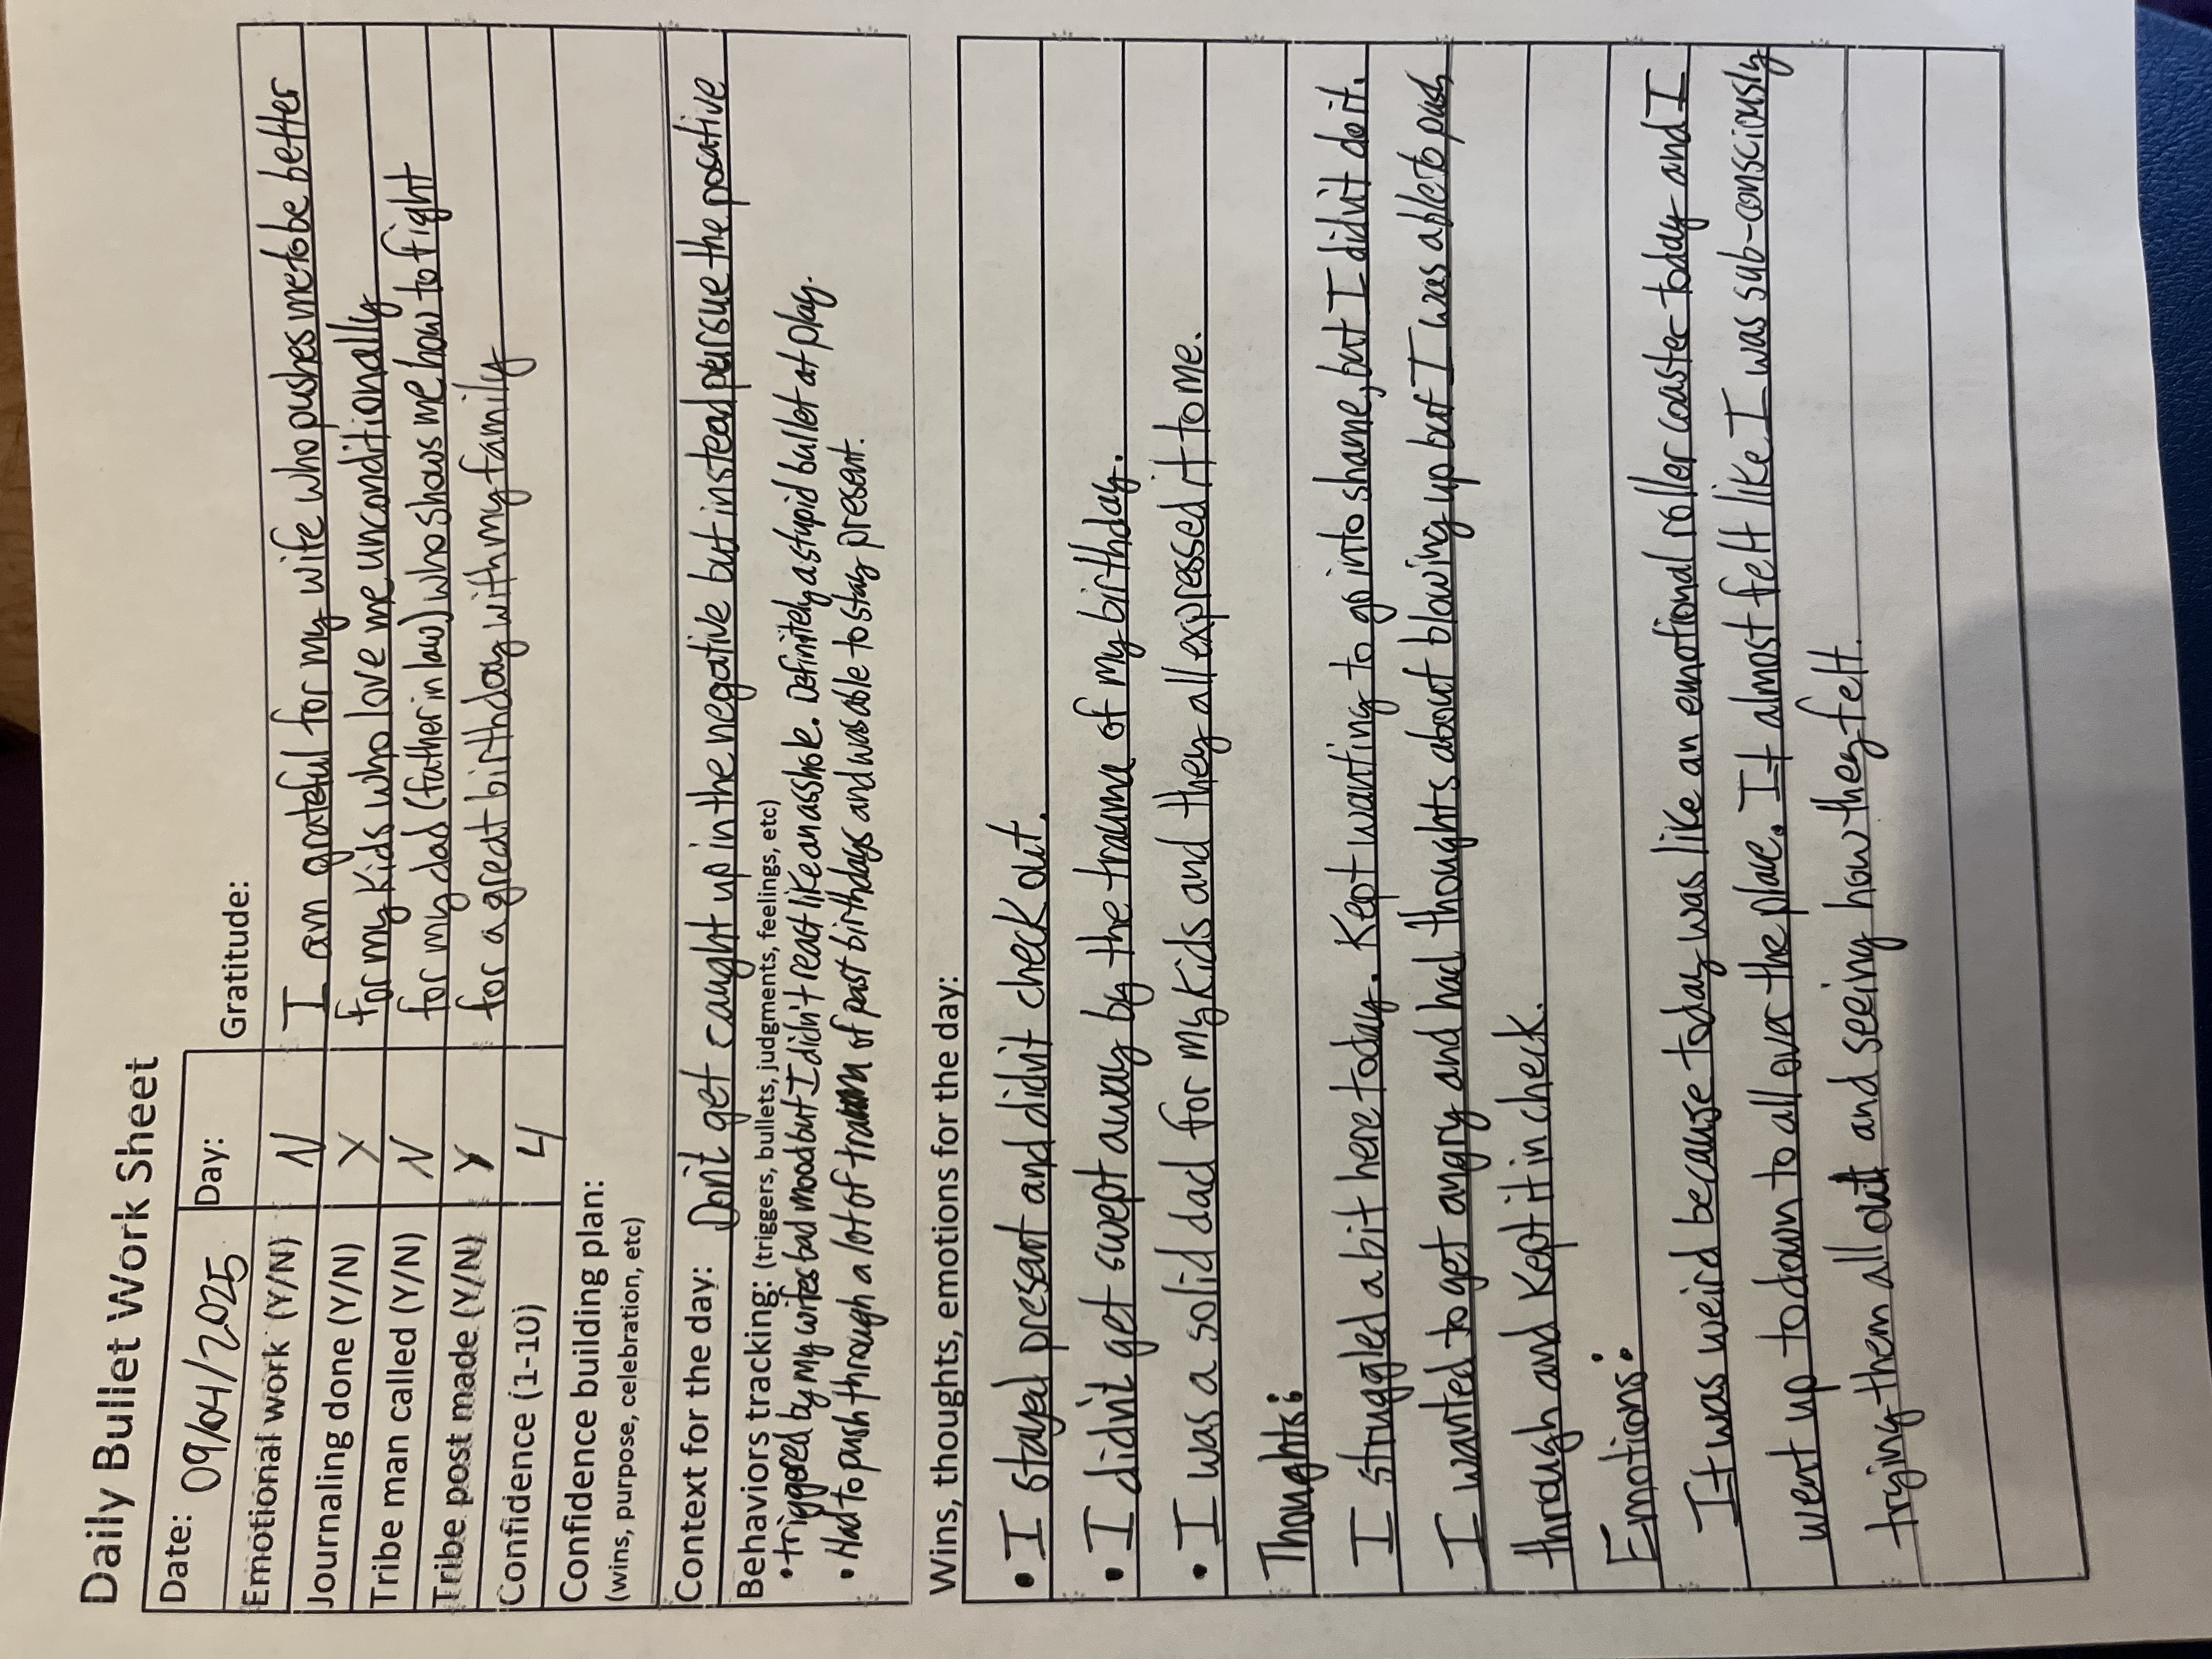 Daily Bullet Work Sheet
Date: 09/04/2025 Day: Gratitude:
Emotional work (Y/N) N I am grateful for my wife who pushes me to be better
Journaling done (Y/N) Y for my kids who love me unconditionally
Tribe man called (Y/N) N for my dad (father in law) who shows me how to fight
Tribe post made (Y/N) Y for a great birthday with my family
Confidence (1-10) 4
Confidence building plan:
(wins, purpose, celebration, etc)
Context for the day: Don't get caught up in the negative but instead persue the posative
Behaviors tracking: (triggers, bullets, judgments, feelings, etc)
• triggered by my wifes bad mood but I didn't react like an asshole. Definitely a stupid bullet at play.
• Had to push through a lot of trauma of past birthdays and was able to stay present.
Wins, thoughts, emotions for the day:
• I stayed present and didn't check out.
• I didn't get swept away by the trauma of my birthday.
• I was a solid dad for my kids and they all expressed it to me.
Thoughts:
I struggled a bit here today. Kept wanting to go into shame, but I didn't do it.
I wanted to get angry and had thoughts about blowing up but I was able to push
through and kept it in check.
Emotions:
It was weird because today was like an emotional roller coaster today and I
went up to down to all over the place. It almost felt like I was sub-consciously
trying them all out and seeing how they felt.